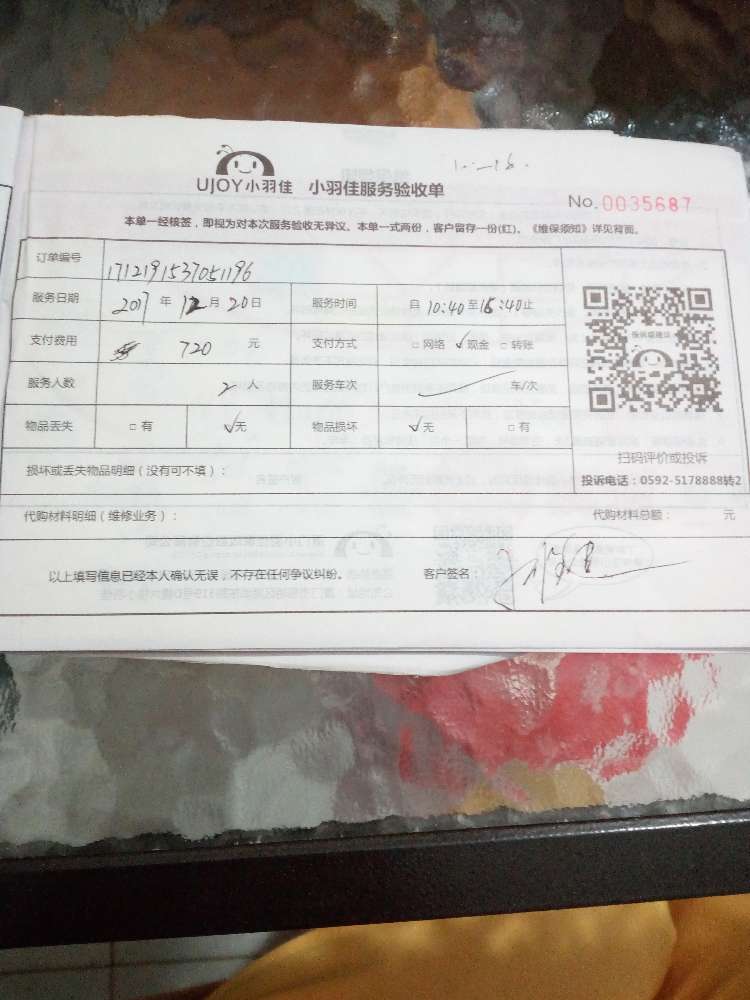 UJOY小羽佳 小羽佳服务验收单
No.0035687
本单一经核签，即视为对本次服务验收无异议、本单一式两份，客户留存一份(红)。《维保须知》详见背面。
订单编号 1712191537051196
服务日期 2017 年 12 月 20 日 服务时间 自 10:40 至 16:40 止
支付费用 720 元 支付方式 □网络 √现金 □转账
服务人数 2 人 服务车次 车/次
物品丢失 □有 √无 物品损坏 √无 □有
损坏或丢失物品明细（没有可不填）：
扫码评价或投诉
投诉电话：0592-5178888转2
代购材料明细（维修业务）： 代购材料总额： 元
以上填写信息已经本人确认无误，不存在任何争议纠纷。 客户签名：